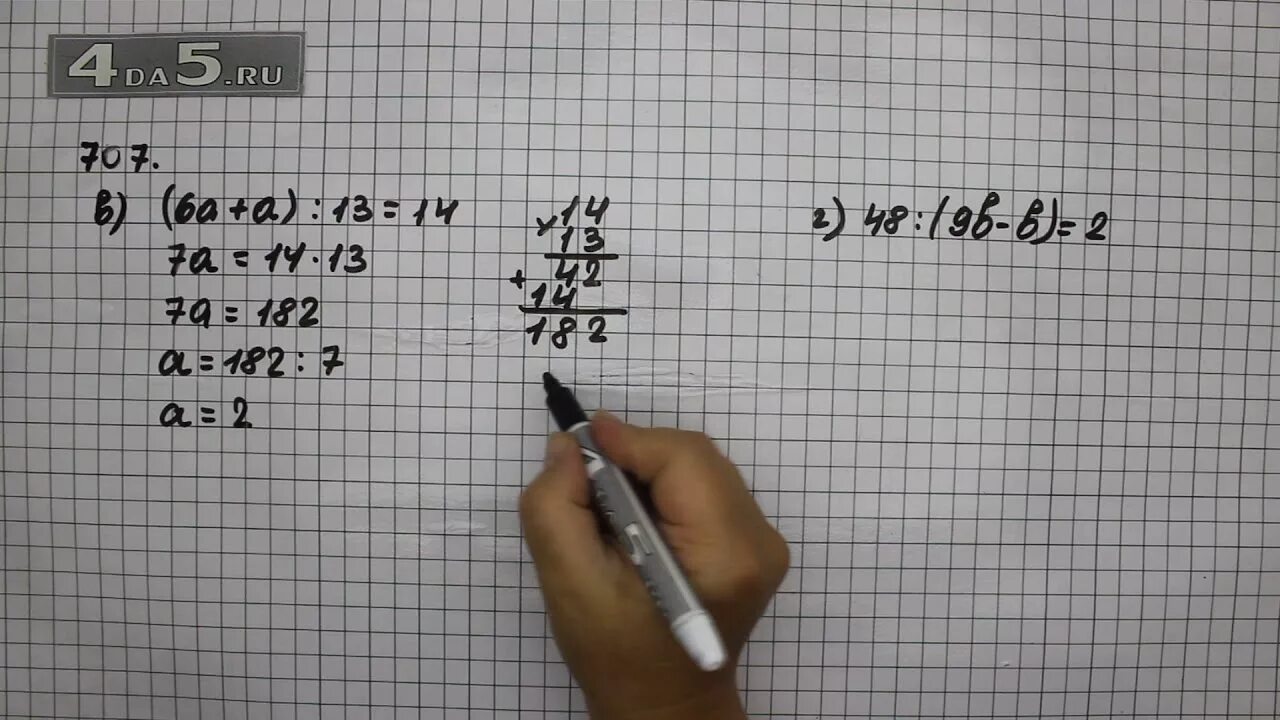 4DA5.RU
707.
в) (6a+a) : 13 = 14
7a = 14·13
7a = 182
a = 182 : 7
a = 2
× 14
13
+ 42
14
182
г) 48 : (9b - b) = 2